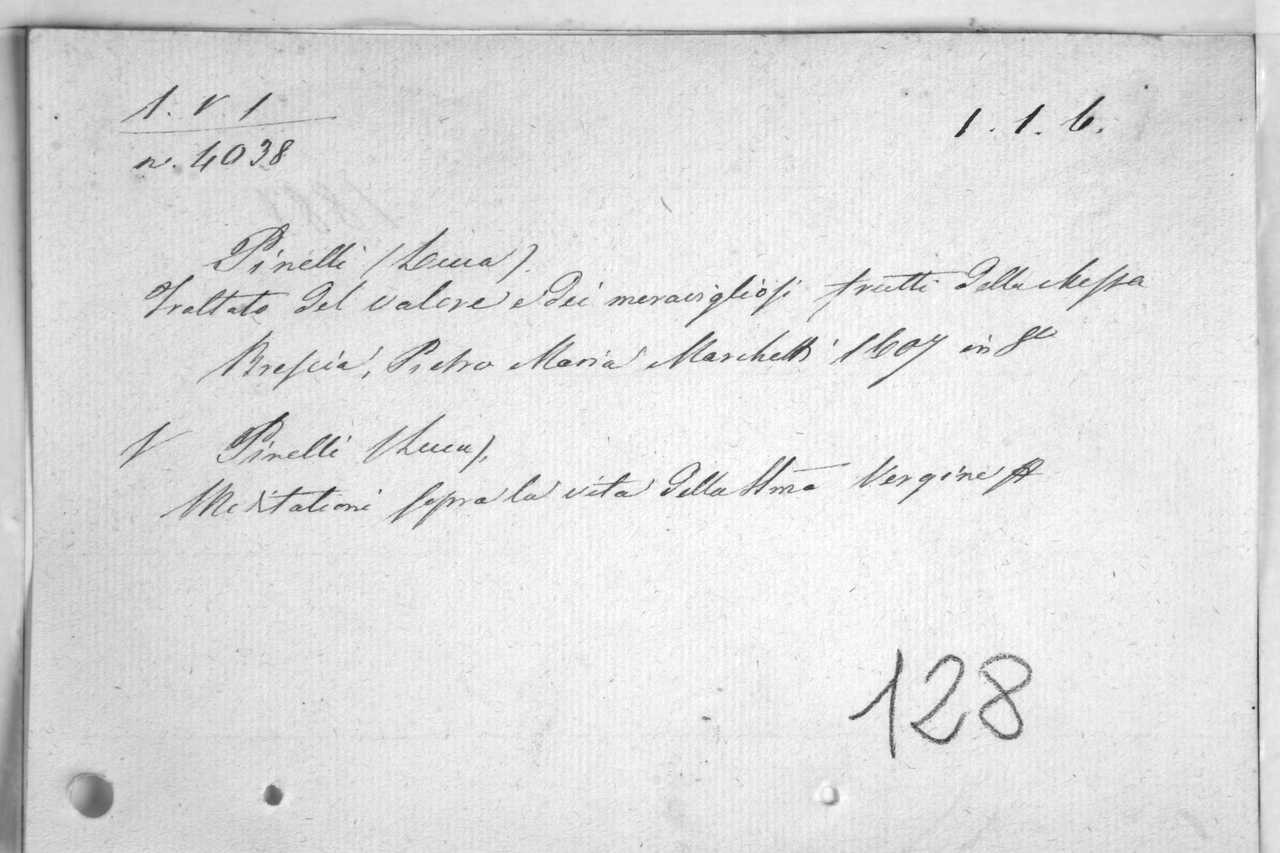 1. V. 1
1. 1. 6.
n. 4038
Pinelli (Luca).
Trattato del valore e dei meravigliosi frutti della Messa
Brescia, Pietro Maria Marchetti 1607 in 8º
V Pinelli (Luca),
Meditationi sopra la vita della Stma Vergine
128